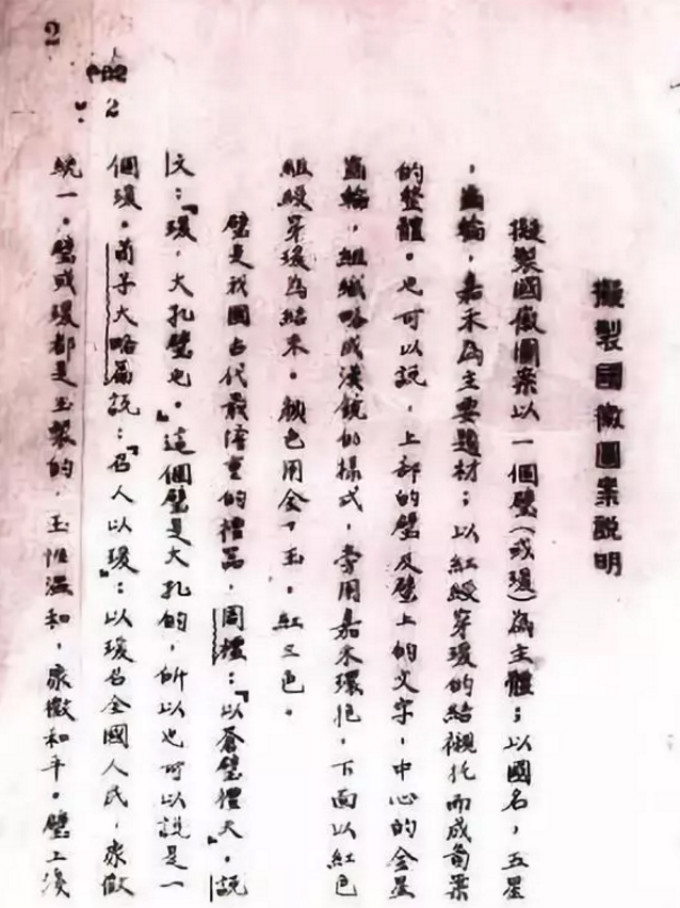 擬製國徽圖案説明
擬製國徽圖案以一個璧(或瑗)為主體；以國名，五星
，齒輪，嘉禾為主要題材；以紅綬穿瑗的結襯托而成圖案
的整體。也可以説，上部的璧及璧上的文字，中心的金星
齒輪，組織略成漢鏡的樣式，旁用嘉禾環抱，下面以紅色
組綬穿瑗為結束。顏色用金，玉，紅三色。
璧是我國古代最隆重的禮器，周禮：『以蒼璧禮天』。説
文：『瑗，大孔璧也。』這個璧是大孔的，所以也可以説是一
個瑗。荀子大略篇説：『召人以瑗』；以瑗召全國人民，象徵
統一。璧或瑗都是玉製的，玉性溫和，象徵和平。璧上淺
2
2